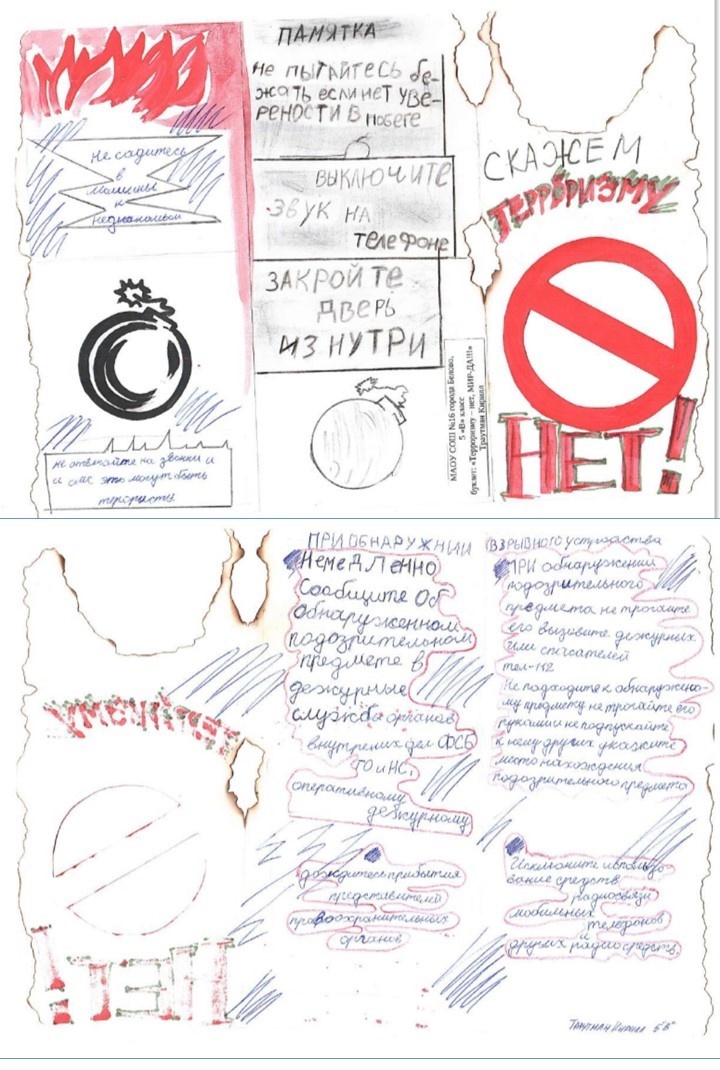 Не садитесь
в
машины
к
незнакомым
не отвечайте на звонки и
и смс это могут быть
терористы
ПАМЯТКА
не пытайтесь бе-
жать если нет уве-
рености в побеге
ВЫКЛЮЧИТЕ
ЗВУК НА
ТЕЛЕФОНЕ
ЗАКРОЙТЕ
ДВЕРЬ
ИЗНУТРИ
МАОУ СОШ №16 города Белово,
5 «В» класс
буклет: «Терроризму – нет, МИР-ДА!!!»
Траутман Кирилл
СКАЖЕМ
ТЕРРОРИЗМУ
НЕТ!
ПРИ ОБНАРУЖНИИ
Немедленно
Сообщите Об
обнаруженном
подозрительном
предмете в
дежурные
службы органов
внутрених дел ФСБ
ГО и ЧС,
оперативному
дежурному
дождитесь прибытия
представителей
правоохранительных
органов
ВЗРЫВНОГО устройства
ПРИ обнаружении
подозрительного
предмета не трогайте
его вызовите дежурных
или спасателей
тел-112
Не подходите к обнаружено-
му предмету не трогайте его
руками и не подпускайте
к нему других укажите
место нахождения
подозрительного предмета
Исключите использо-
вание средств
радиосвязи
мобильных
телефонов
и
других радиосредств.
Траутман Кирилл 5"В"